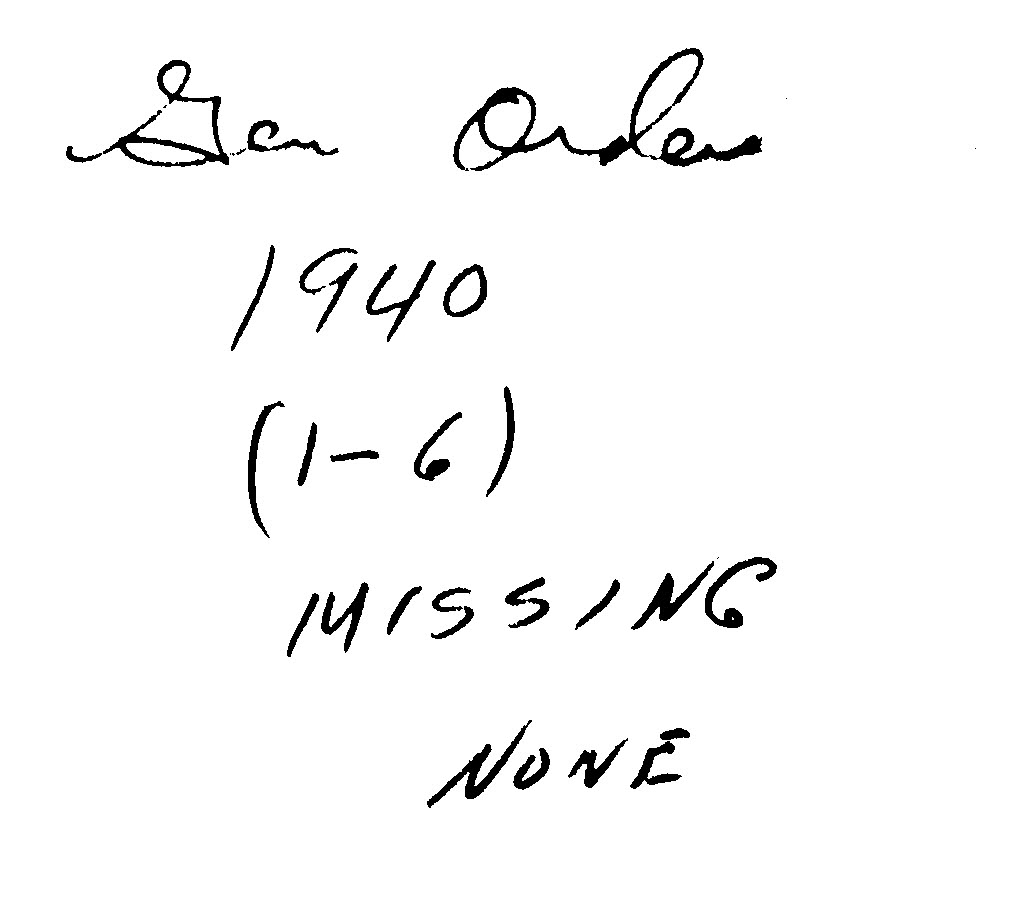 Gen Orders
1940
(1-6)
MISSING
NONE